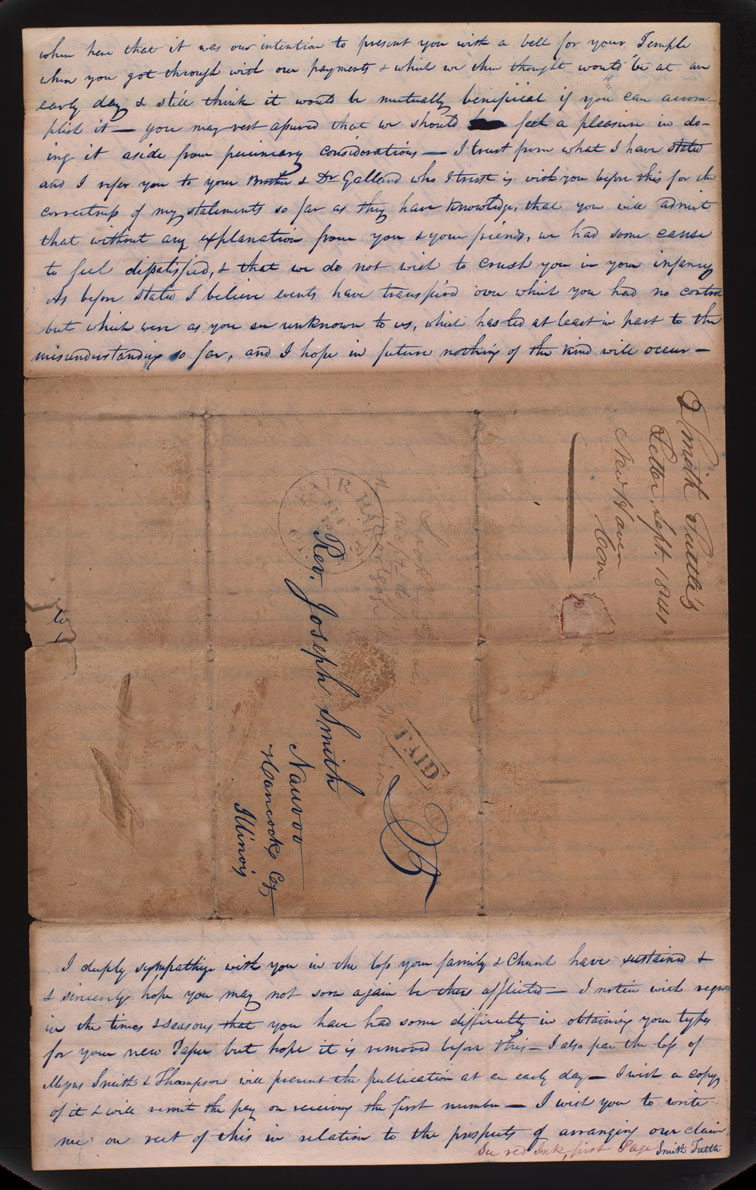 when here that it was our intention to present you with a bell for your Temple
when you got through with our payments & which we then thought would be at an
early day & still think it would be mutually beneficial if you can accom-
plish it — you may rest assured that we should feel a pleasure in do-
ing it aside from pecuniary considerations — I trust from what I have stated
and I refer you to your Brother & Dr Galland who I trust is with you before this for the
correctness of my statements so far as they have knowledge, that you will admit
that without any explanation from you & your friends, we had some cause
to feel dissatisfied, & that we do not wish to crush you in your infancy
As before stated I believe events have transpired over which you had no control
but which were as you say unknown to us, which has led at least in part to the
misunderstanding so far, and I hope in future nothing of the kind will occur —
Smith Tuttle's
Letter, Sept. 1841
New Haven
Con.
FAIR HAVEN
PAID
25
Rev. Joseph Smith
Nauvoo
Hancock Co
Illinois
I deeply sympathize with you in the loss your family & Church have sustained &
& sincerely hope you may not soon again be thus afflicted — I notice with regret
in the times & seasons that you have had some difficulty in obtaining your types
for your new Paper but hope it is removed before this — I also fear the loss of
Mssrs Smith & Thompson will prevent the publication at an early day — I wish a copy
of it & will remit the pay on receiving the first number — I wish you to write
me on rect of this in relation to the prospects of arranging our claim
See red Ink, first Page Smith Tuttle